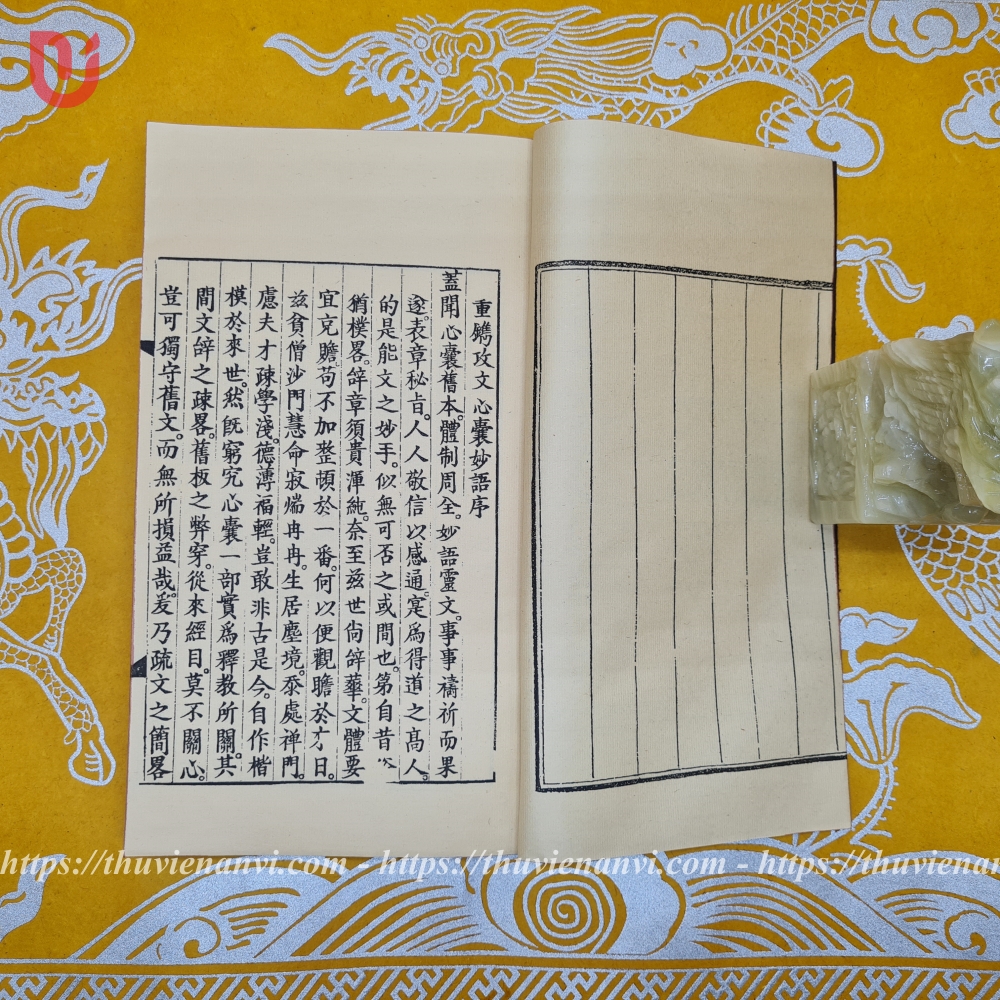 重鐫攻文心囊妙語序
蓋聞心囊舊本。體制周全。妙語靈文。事事禱祈而果
遂。表章秘旨。人人敬信以感通。寔爲得道之髙人。
的是能文之妙手。似無可否之或間也。第自昔
猶樸畧。辞章須貴渾純。奈至茲世尚辞華。文體要
宜充贍。苟不加整頓於一番。何以便觀瞻於才日。
兹貧僧沙門慧命寂端冉冉。生居塵境。忝處禅門。
慮夫才疎學。淺。德薄福輕。豈敢非古是今。自作楷
模於來世。然既窮究心囊一部實爲釋教所關。其
間文辞之疎畧。舊板之弊穿。從來經目。莫不關心。
豈可獨守舊文。而無所損益哉。爰乃疏文之簡畧
https://thuvienanvi.com - https://thuvienanvi.com - https://thuviena